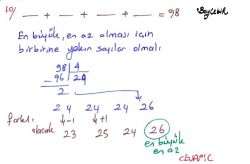 10/ — + — + — + — = 98
En büyük, en az olması için
birbirine yakın sayılar olmalı
98 | 4
- 96 | 24
2
24 24 24 26
farklı olacak ↓-1 ↓+1
23 25 24 26
en büyük
en az
CEVAP: C